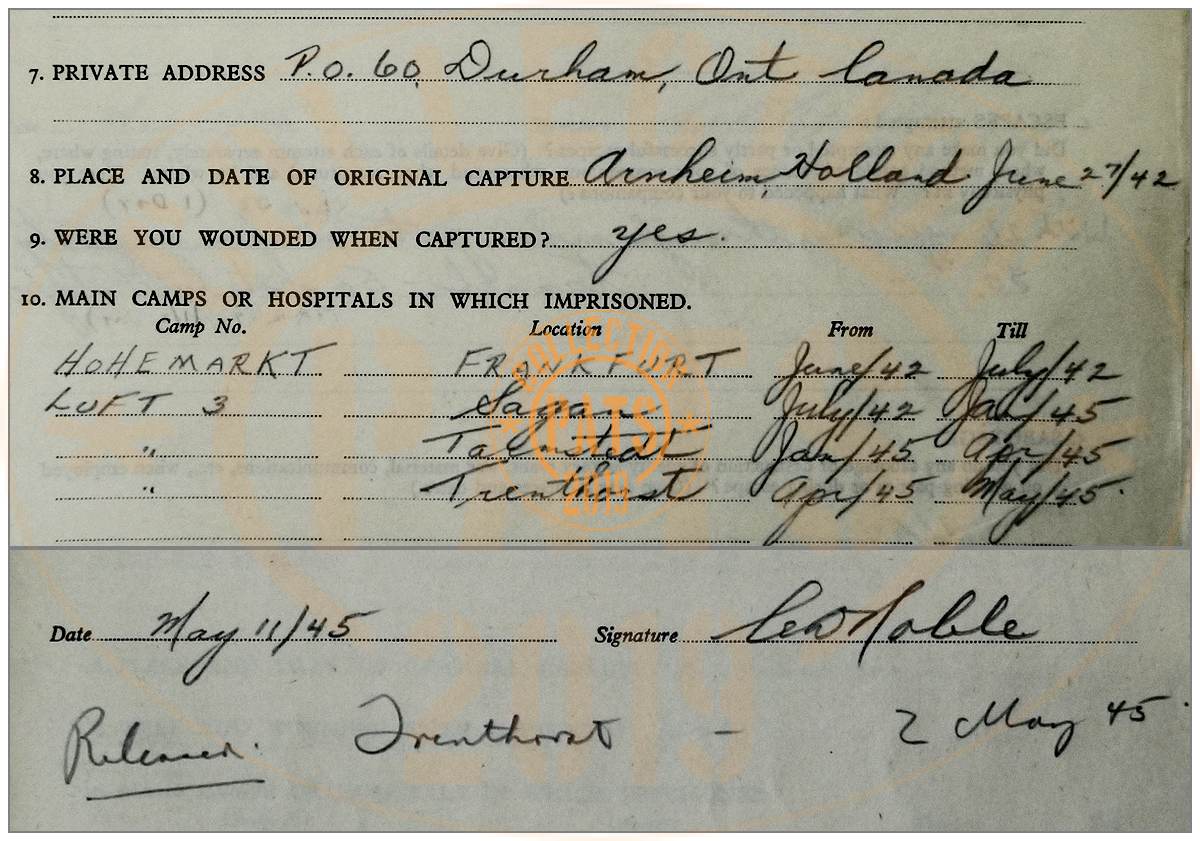 7. PRIVATE ADDRESS P.O. 60, Durham, Ont Canada
8. PLACE AND DATE OF ORIGINAL CAPTURE Arnheim, Holland June 27/42
9. WERE YOU WOUNDED WHEN CAPTURED? yes.
10. MAIN CAMPS OR HOSPITALS IN WHICH IMPRISONED.
Camp No. Location From Till
HOHEMARKT FRANKFURT June/42 July/42
LUFT 3 Sagan July/42 Jan/45
" Talmstedt Jan/45 Apr/45
" Trenthorst Apr/45 May/45.
COLLECTION
PATS
2019
Date May 11/45 Signature Noble
Released. Trenthorst - 2 May 45.